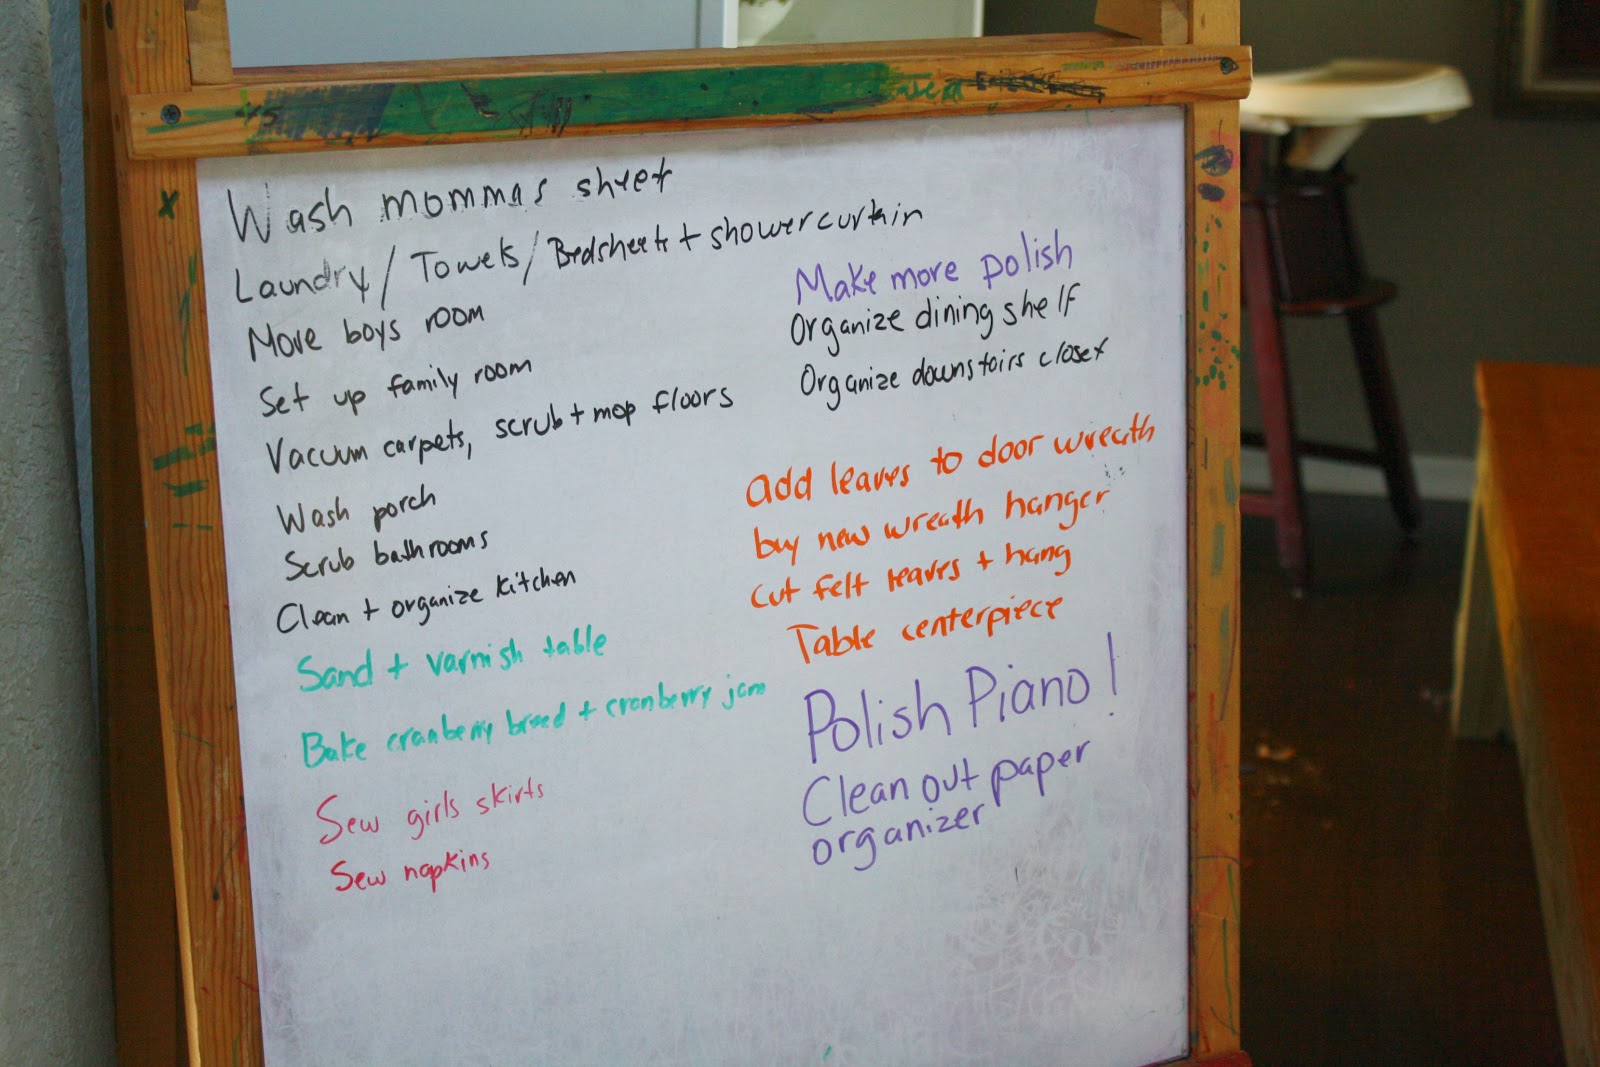 Wash mommas sheet
Laundry/Towels/Bedsheets + shower curtain
Move boys room
Set up family room
Vacuum carpets, scrub + mop floors
Wash porch
Scrub bathrooms
Clean + organize kitchen
Sand + varnish table
Bake cranberry bread + cranberry jam
Sew girls skirts
Sew napkins
Make more polish
Organize dining shelf
Organize downstairs closet
add leaves to door wreath
buy new wreath hanger
cut felt leaves + hang
Table centerpiece
Polish Piano!
Clean out paper
organizer